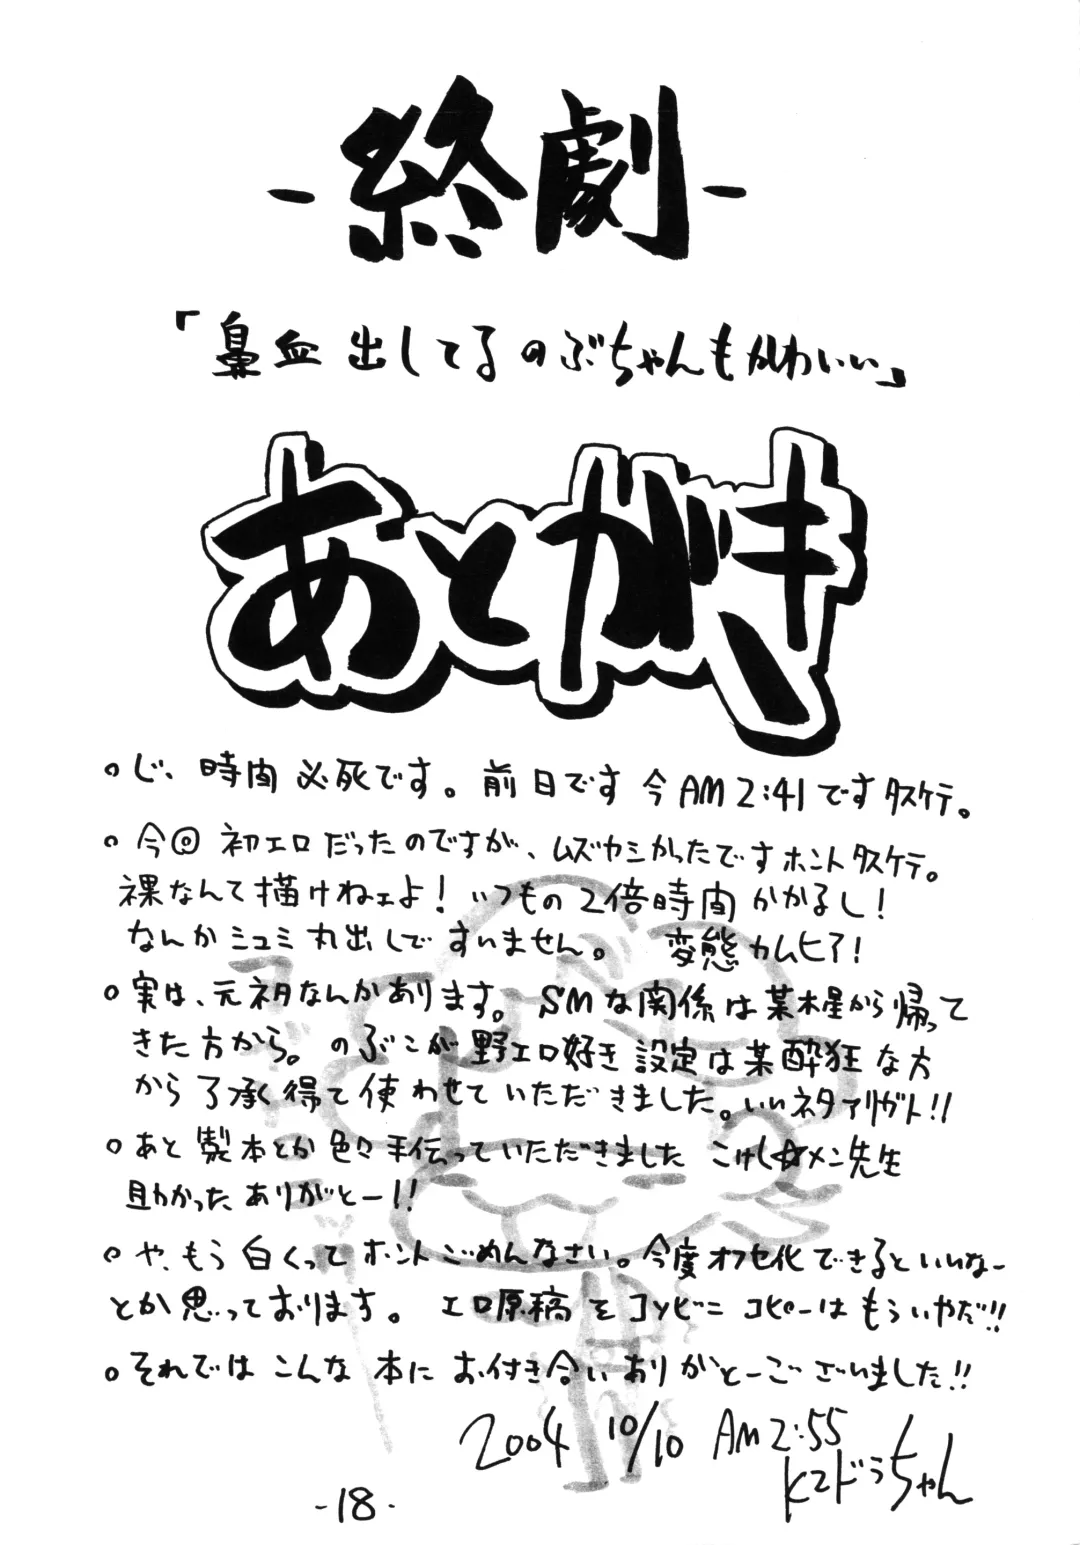 -終劇-
「鼻血出してるのぶちゃんもかわいい」
あとがき
○じ、時間必死です。前日です 今AM2:41です タスケテ。
○今回 初エロだったのですが、ムズカシかったです ホント タスケテ。
裸なんて描けねェよ！いつもの2倍時間かかるし！
なんかシュミ丸出しですいません。 変態カムヒア！
○実は、元ネタなんかあります。SMな関係は某木星から帰って
きた方から。のぶこが野エロ好き設定は某酔狂な方
から了承得て使わせていただきました。いいネタアリガト!!
○あと製本とか色々手伝っていただきました こけし☆メン先生
助かった ありがとー!!
○や、もう白くってホントごめんなさい。今度オフセ化できるといいなー
とか思っております。 エロ原稿をコンビニコピーはもういやだ!!
○それではこんな本にお付き合いありがとーございました!!
2004 10/10 AM2:55
K2ドゥちゃん
-18-